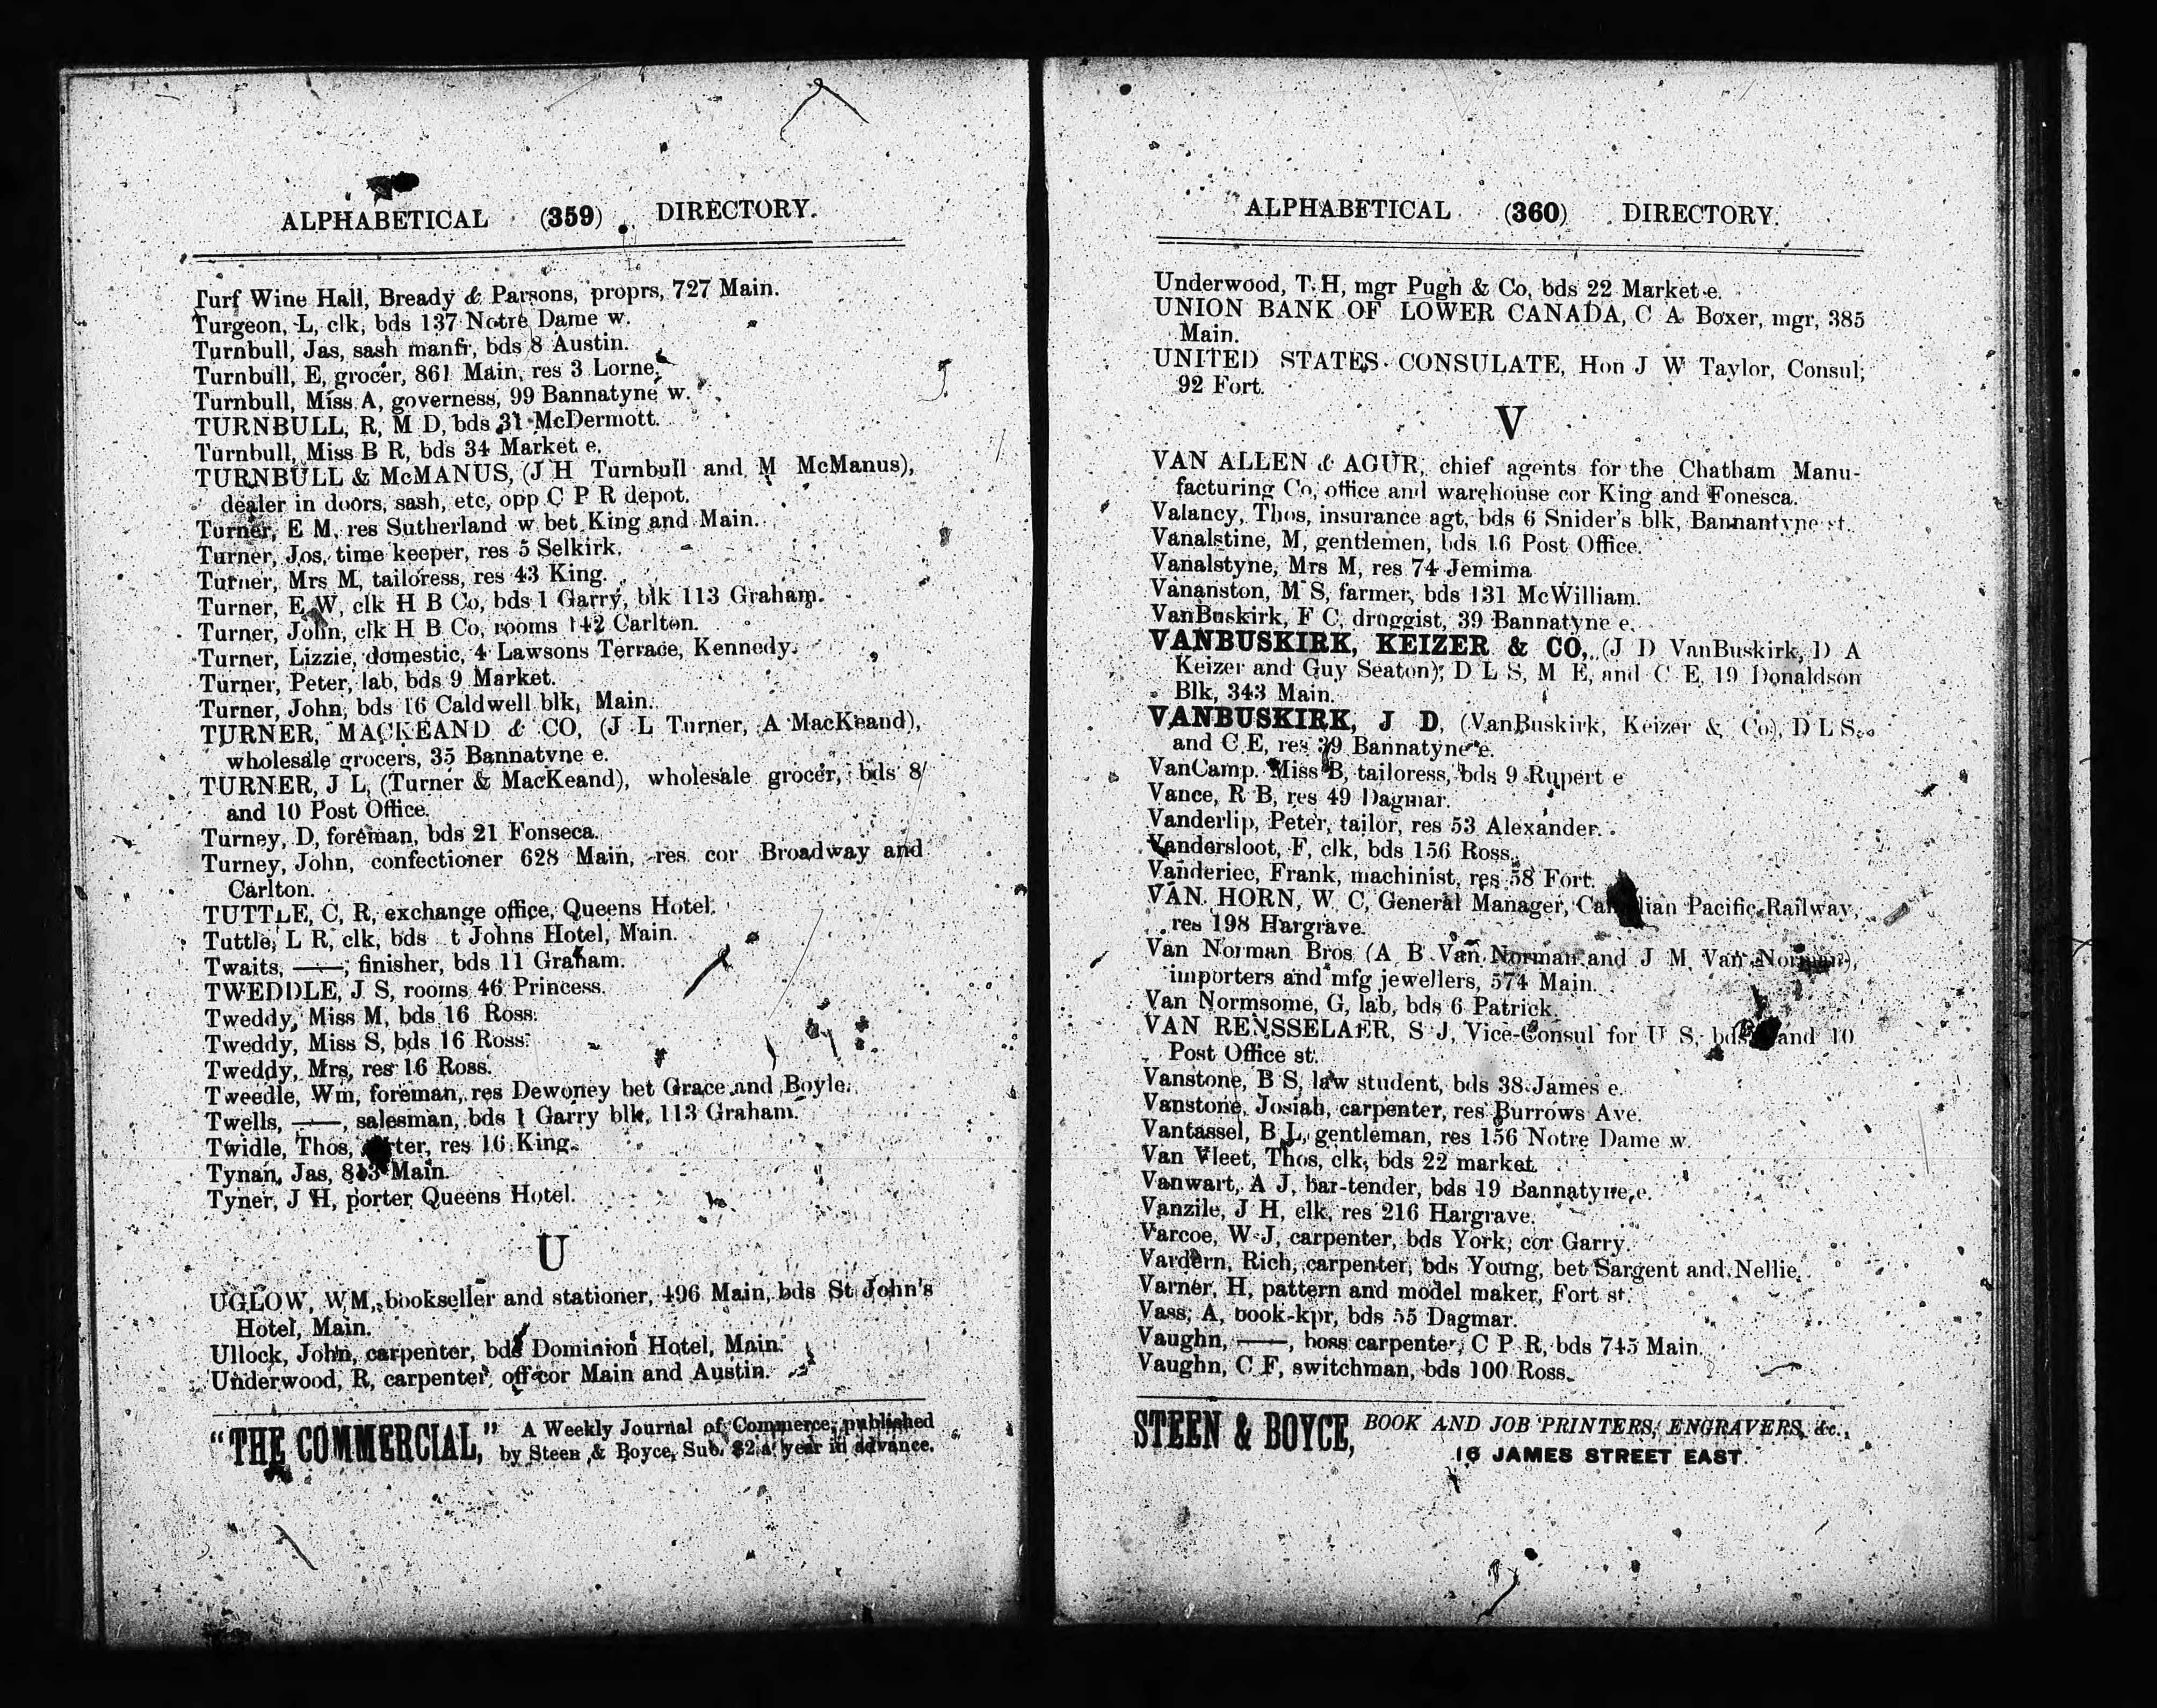 ALPHABETICAL (359) DIRECTORY.
Turf Wine Hall, Bready & Parsons, proprs, 727 Main.
Turgeon, L, clk, bds 137 Notre Dame w.
Turnbull, Jas, sash manfr, bds 8 Austin.
Turnbull, E, grocer, 861 Main, res 3 Lorne.
Turnbull, Miss A, governess, 99 Bannatyne w.
TURNBULL, R, M D, bds 31 McDermott.
Turnbull, Miss B R, bds 34 Market e.
TURNBULL & McMANUS, (J H Turnbull and M McManus),
dealer in doors, sash, etc, opp C P R depot.
Turner, E M, res Sutherland w bet King and Main.
Turner, Jos, time keeper, res 5 Selkirk.
Turner, Mrs M, tailoress, res 43 King.
Turner, E W, clk H B Co, bds 1 Garry, blk 113 Graham.
Turner, John, clk H B Co, rooms 142 Carlton.
Turner, Lizzie, domestic, 4 Lawsons Terrace, Kennedy.
Turner, Peter, lab, bds 9 Market.
Turner, John, bds 16 Caldwell blk, Main.
TURNER, MACKEAND & CO, (J L Turner, A MacKeand),
wholesale grocers, 35 Bannatyne e.
TURNER, J L, (Turner & MacKeand), wholesale grocer, bds 8
and 10 Post Office.
Turney, D, foreman, bds 21 Fonseca.
Turney, John, confectioner 628 Main, res cor Broadway and
Carlton.
TUTTLE, C, R, exchange office, Queens Hotel.
Tuttle, L R, clk, bds t Johns Hotel, Main.
Twaits, ——, finisher, bds 11 Graham.
TWEDDLE, J S, rooms 46 Princess.
Tweddy, Miss M, bds 16 Ross.
Tweddy, Miss S, bds 16 Ross.
Tweddy, Mrs, res 16 Ross.
Tweedle, Wm, foreman, res Dewoney bet Grace and Boyle.
Twells, ——, salesman, bds 1 Garry blk, 113 Graham.
Twidle, Thos, res 16 King.
Tynan, Jas, 813 Main.
Tyner, J H, porter Queens Hotel.
U
UGLOW, WM, bookseller and stationer, 496 Main, bds St John's
Hotel, Main.
Ullock, John, carpenter, bds Dominion Hotel, Main.
Underwood, R, carpenter, off cor Main and Austin.
"THE COMMERCIAL," A Weekly Journal of Commerce, published
by Steen & Boyce, Sub. $2 a year in advance.
ALPHABETICAL (360) DIRECTORY.
Underwood, T H, mgr Pugh & Co, bds 22 Market e.
UNION BANK OF LOWER CANADA, C A Boxer, mgr, 385
Main.
UNITED STATES CONSULATE, Hon J W Taylor, Consul,
92 Fort.
V
VAN ALLEN & AGUR, chief agents for the Chatham Manu-
facturing Co, office and warehouse cor King and Fonesca.
Valancy, Thos, insurance agt, bds 6 Snider's blk, Bannantyne st.
Vanalstine, M, gentlemen, bds 16 Post Office.
Vanalstyne, Mrs M, res 74 Jemima
Vananston, M S, farmer, bds 131 McWilliam.
VanBuskirk, F C, druggist, 39 Bannatyne e.
VANBUSKIRK, KEIZER & CO, (J D VanBuskirk, D A
Keizer and Guy Seaton), D L S, M E, and C E, 19 Donaldson
Blk, 343 Main.
VANBUSKIRK, J D, (VanBuskirk, Keizer & Co), D L S,
and C E, res 39 Bannatyne e.
VanCamp. Miss B, tailoress, bds 9 Rupert e
Vance, R B, res 49 Dagmar.
Vanderlip, Peter, tailor, res 53 Alexander.
Vandersloot, F, clk, bds 156 Ross.
Vanderiec, Frank, machinist, res 58 Fort.
VAN HORN, W C, General Manager, Canadian Pacific Railway,
res 198 Hargrave.
Van Norman Bros (A B Van Norman and J M Van Norman),
importers and mfg jewellers, 574 Main.
Van Normsome, G, lab, bds 6 Patrick.
VAN RENSSELAER, S J, Vice-Consul for U S, bds and 10
Post Office st.
Vanstone, B S, law student, bds 38 James e.
Vanstone, Josiah, carpenter, res Burrows Ave.
Vantassel, B L, gentleman, res 156 Notre Dame w.
Van Vleet, Thos, clk, bds 22 market.
Vanwart, A J, bar-tender, bds 19 Bannatyne e.
Vanzile, J H, clk, res 216 Hargrave.
Varcoe, W J, carpenter, bds York, cor Garry.
Vardern, Rich, carpenter, bds Young, bet Sargent and Nellie.
Varner, H, pattern and model maker, Fort st.
Vass, A, book-kpr, bds 55 Dagmar.
Vaughn, ——, boss carpenter, C P R, bds 745 Main.
Vaughn, C F, switchman, bds 100 Ross.
STEEN & BOYCE, BOOK AND JOB PRINTERS, ENGRAVERS, &c.,
16 JAMES STREET EAST.